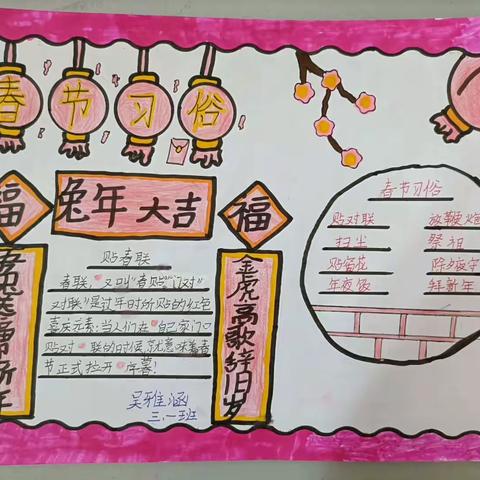 春节习俗
福
兔年大吉
福
玉兔送福迎新年
金虎高歌辞旧岁
贴春联
春联,又叫"春贴""门对"
对联"是过年时所贴的红色
喜庆元素:当人们在自己家门口
贴对联的时候,就意味着春
节正式拉开序幕!
吴雅涵
三.一班
春节习俗
贴对联
放鞭炮
扫尘
祭祖
贴窗花
除夕守
年夜饭
拜新年